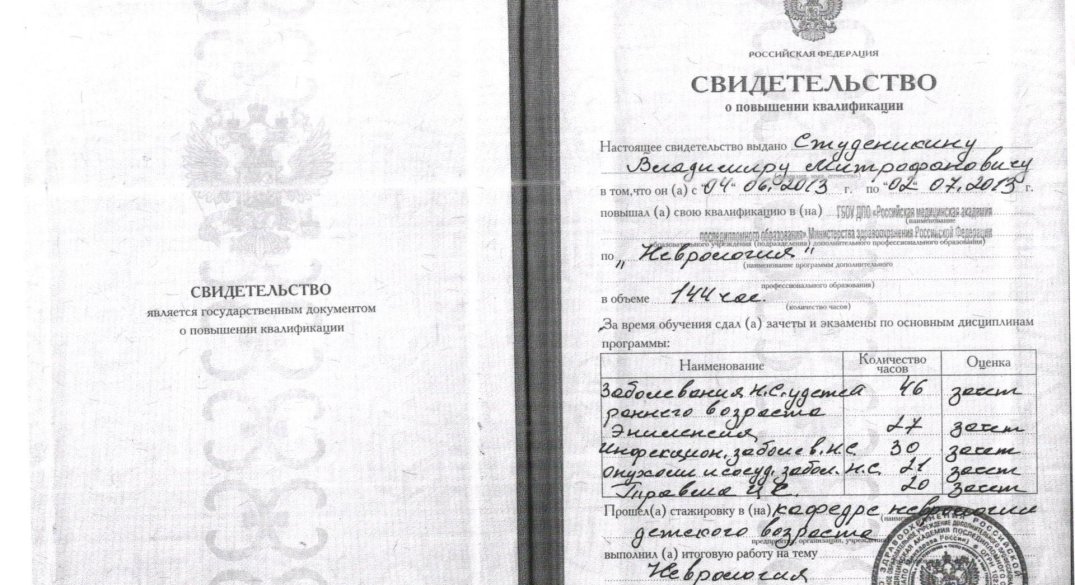 СВИДЕТЕЛЬСТВО
является государственным документом
о повышении квалификации
РОССИЙСКАЯ ФЕДЕРАЦИЯ
СВИДЕТЕЛЬСТВО
о повышении квалификации
Настоящее свидетельство выдано Студеникину
Владимиру Митрофановичу
в том,что он (а) с "04" 06.2013 г. по "02" 07.2013 г.
повышал (а) свою квалификацию в (на) ГБОУ ДПО «Российская медицинская академия
(наименование
последипломного образования» Министерства здравоохранения Российской Федерации
образовательного учреждения (подразделения) дополнительного профессионального образования)
по „Неврология"
(наименование программы дополнительного
профессионального образования)
в объеме 144 час.
(количество часов)
За время обучения сдал (а) зачеты и экзамены по основным дисциплинам
программы:
Наименование Количество часов Оценка
Заболевания н.с. у детей 46 зачет
раннего возраста
Эпилепсия 27 зачет
Инфекцион. заболев. н.с. 30 зачет
Опухоли и сосуд. забол. н.с. 21 зачет
Травма 20 зачет
Прошел(а) стажировку в (на) кафедре неврологии
детского возраста
предприятие, организации, учреждения
выполнил (а) итоговую работу на тему
Неврология